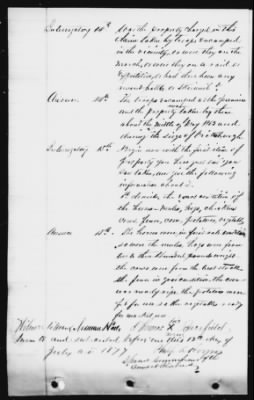 Interrogatory 14th Was the property charged in this
Claim taken by troops encamped
in the vicinity, or were they on the
march, or were they on a raid or
expedition, or had there been any
recent battle or skirmish?
Answer 14th The troops encamped on the premises
and the property was taken by them
about the middle of May 1863 and
during the siege of Vicksburgh
Interrogatory 15th Begin now with the first item of
property you have just said you
saw taken, and give the following
information about it.
1st describe its condition
the horses mules, hogs, chickens
cows, corn, potatoes, vegetables
Answer 15th The horses were in first rate condition
so were the mules, hogs were from
two to three hundred pounds weight
the cows were from the best stock
the corn in good condition, the
potatoes were
so the vegetables ready
for market use
Witness to Mary his
mark
Sworn to and subscribed before me this 12th day of
July A.D. 1877
Special Commissioner of the
Court of Claims